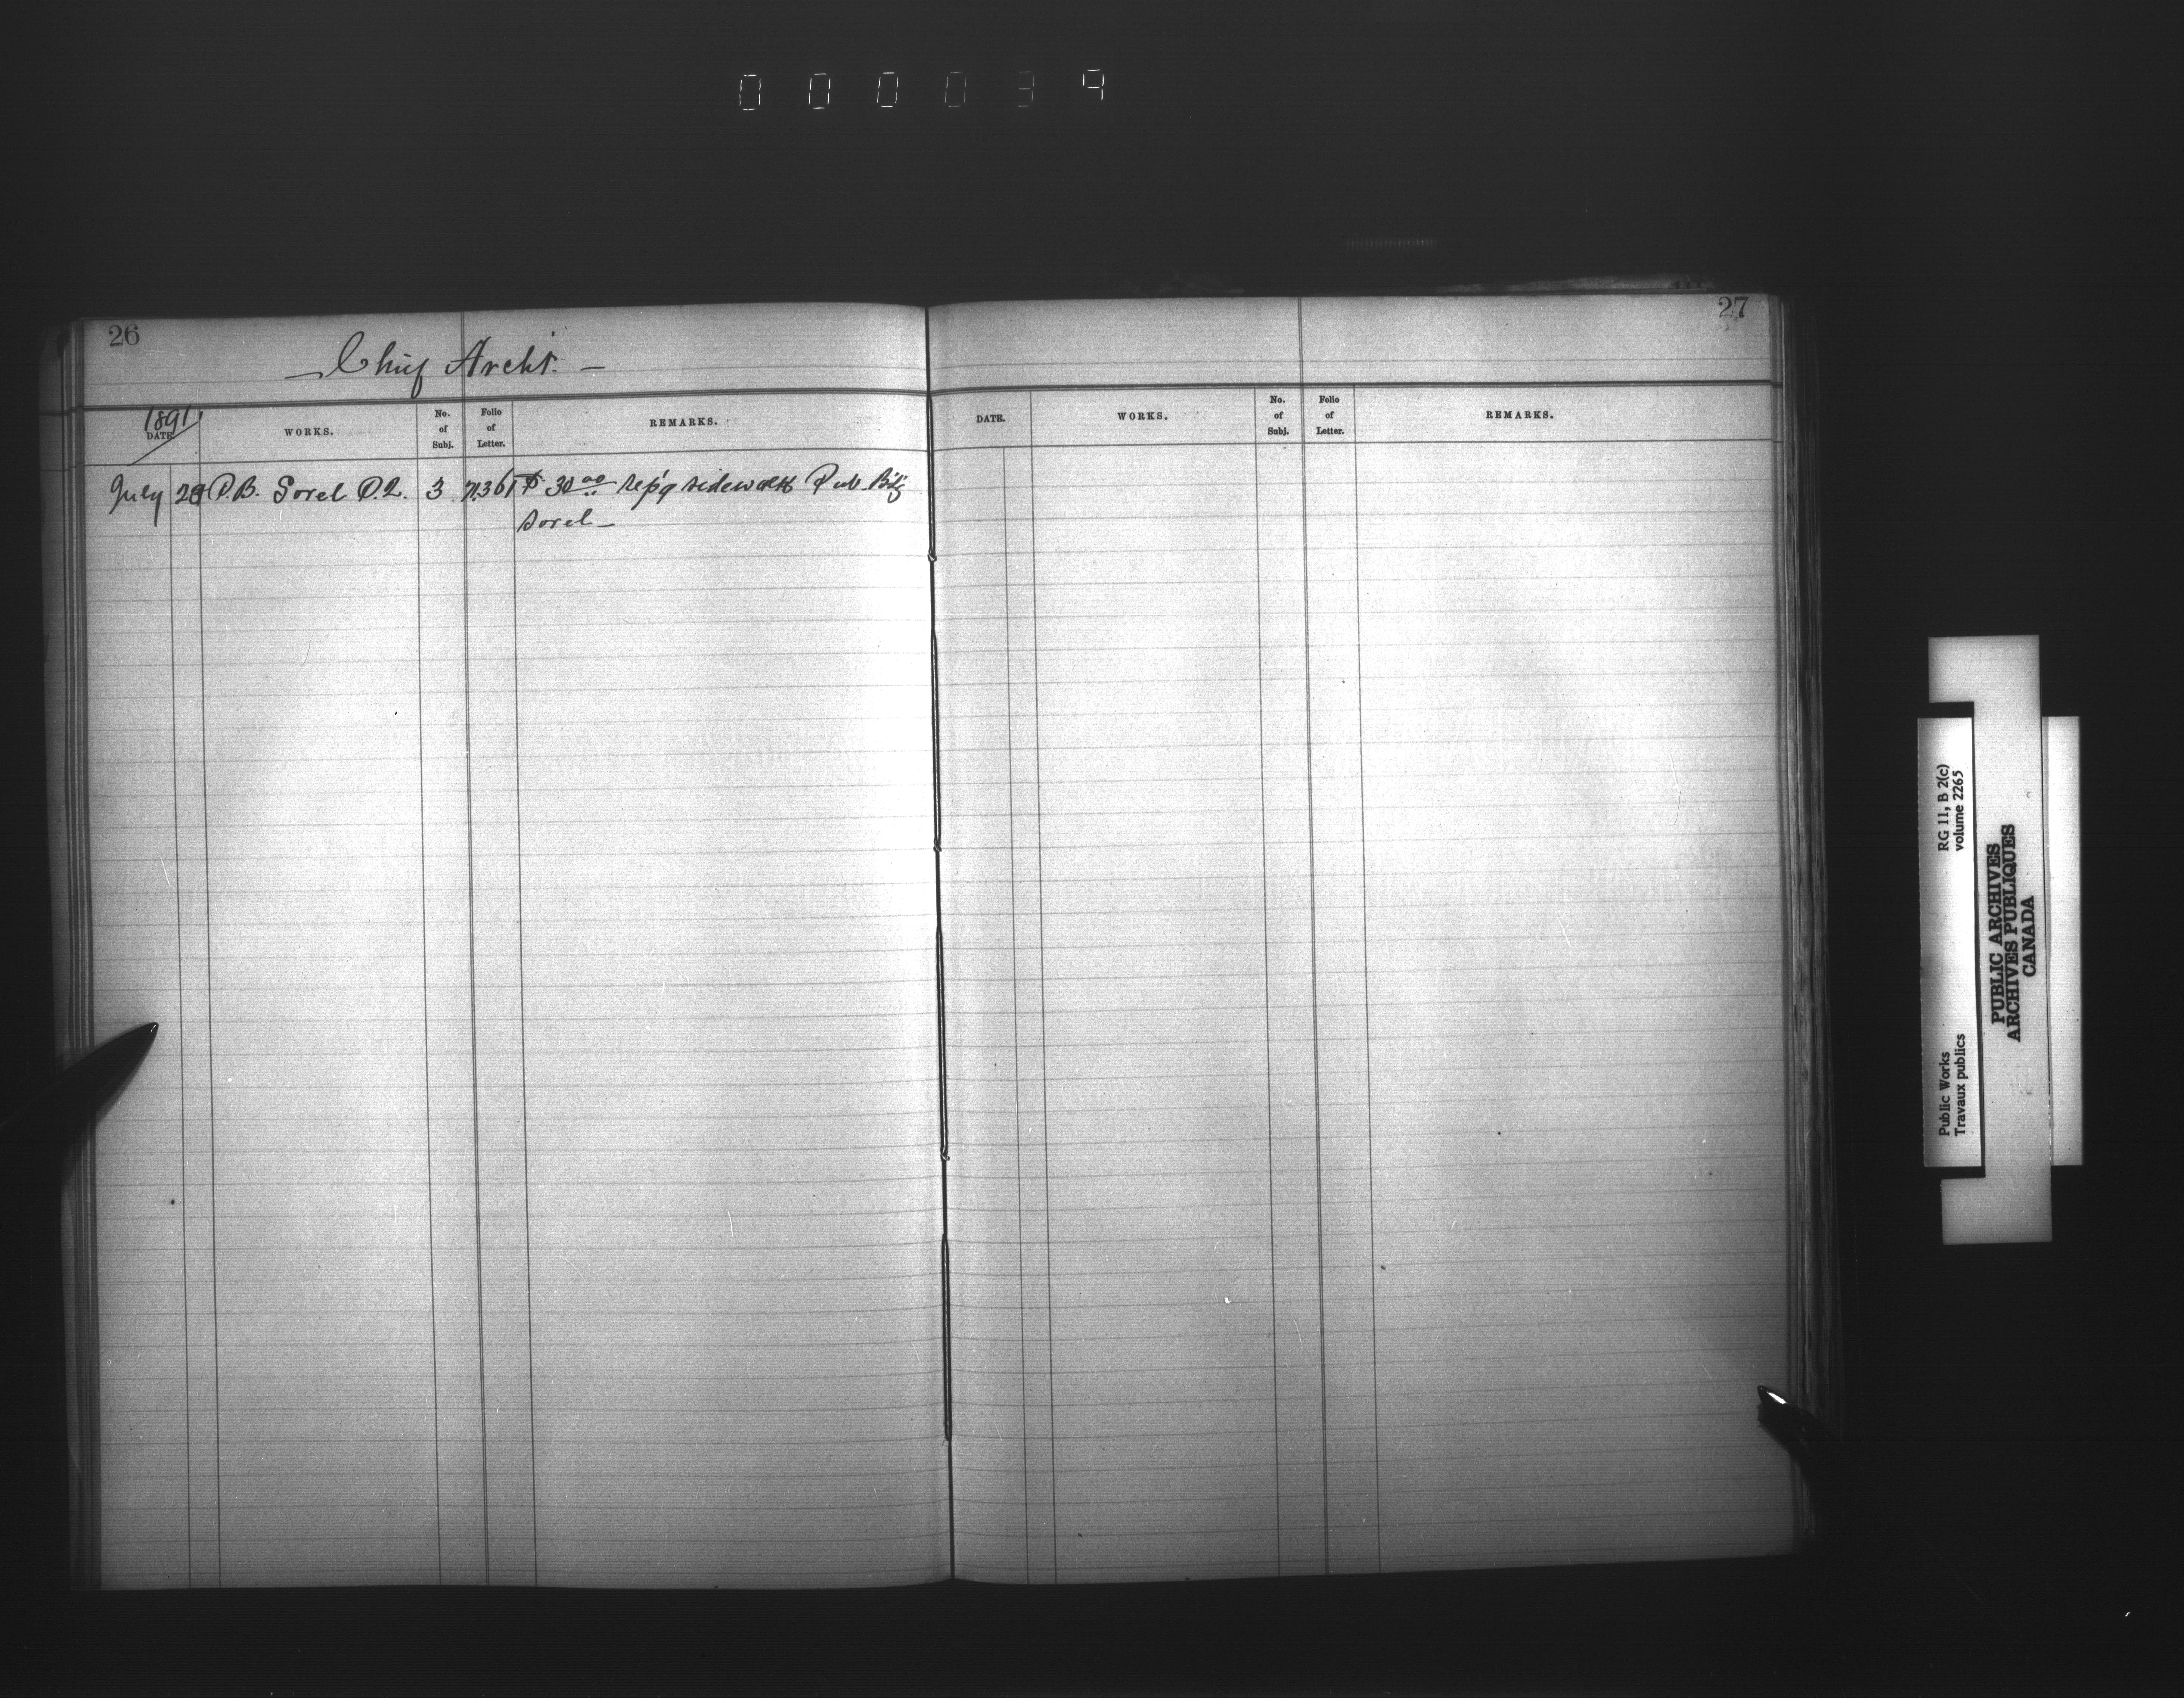 000039
26
Chief Archt.
1891
DATE. WORKS. No. of Subj. Folio of Letter. REMARKS.
July 28 P.B. Sorel P.Q. 3 71361 $30.00 rep'g sidewalk Pub. B'd'g
Sorel
27
DATE. WORKS. No. of Subj. Folio of Letter. REMARKS.
RG 11, B 2(c)
volume 2265
Public Works
Travaux publics
PUBLIC ARCHIVES
ARCHIVES PUBLIQUES
CANADA